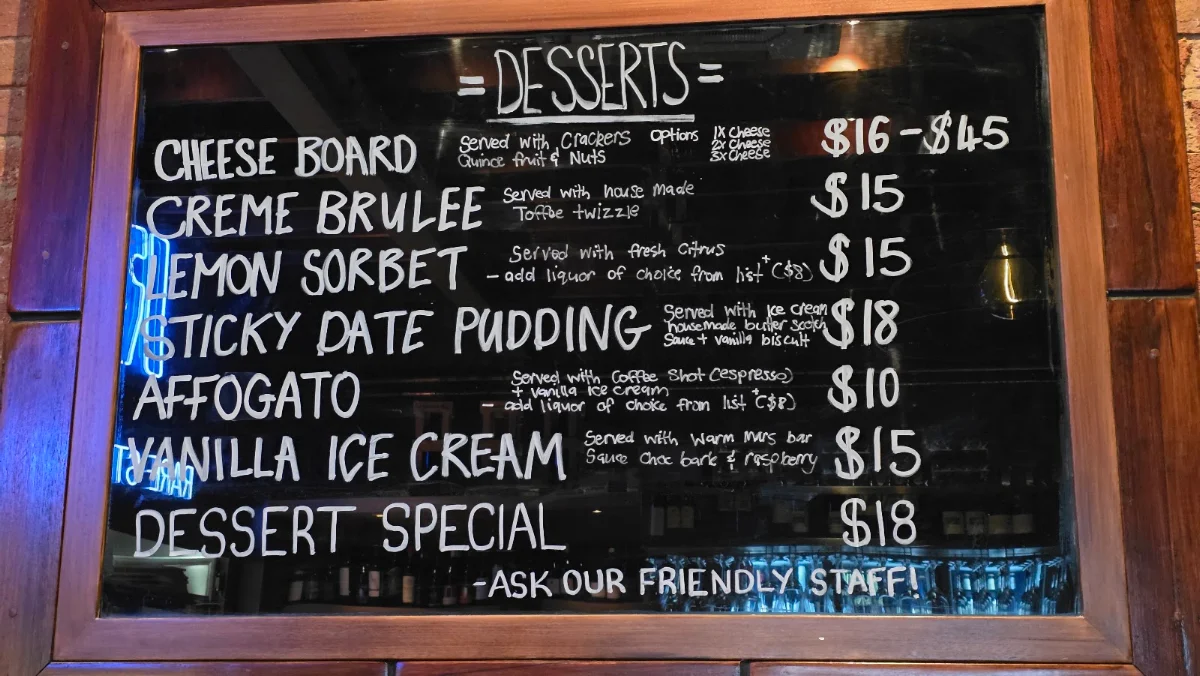 = DESSERTS =
CHEESE BOARD Served with Crackers Quince fruit & Nuts Options 1x Cheese 2x Cheese 3x Cheese $16-$45
CREME BRULEE Served with house made Toffee twizzle $15
LEMON SORBET Served with fresh Citrus - add liquor of choice from list +($8) $15
STICKY DATE PUDDING Served with Ice cream housemade butter scotch Sauce + vanilla biscuit $18
AFFOGATO Served with Coffee Shot (espresso) + vanilla ice cream - add liquor of choice from list +($8) $10
VANILLA ICE CREAM Served with warm mars bar Sauce choc bark & raspberry $15
DESSERT SPECIAL $18
-ASK OUR FRIENDLY STAFF!